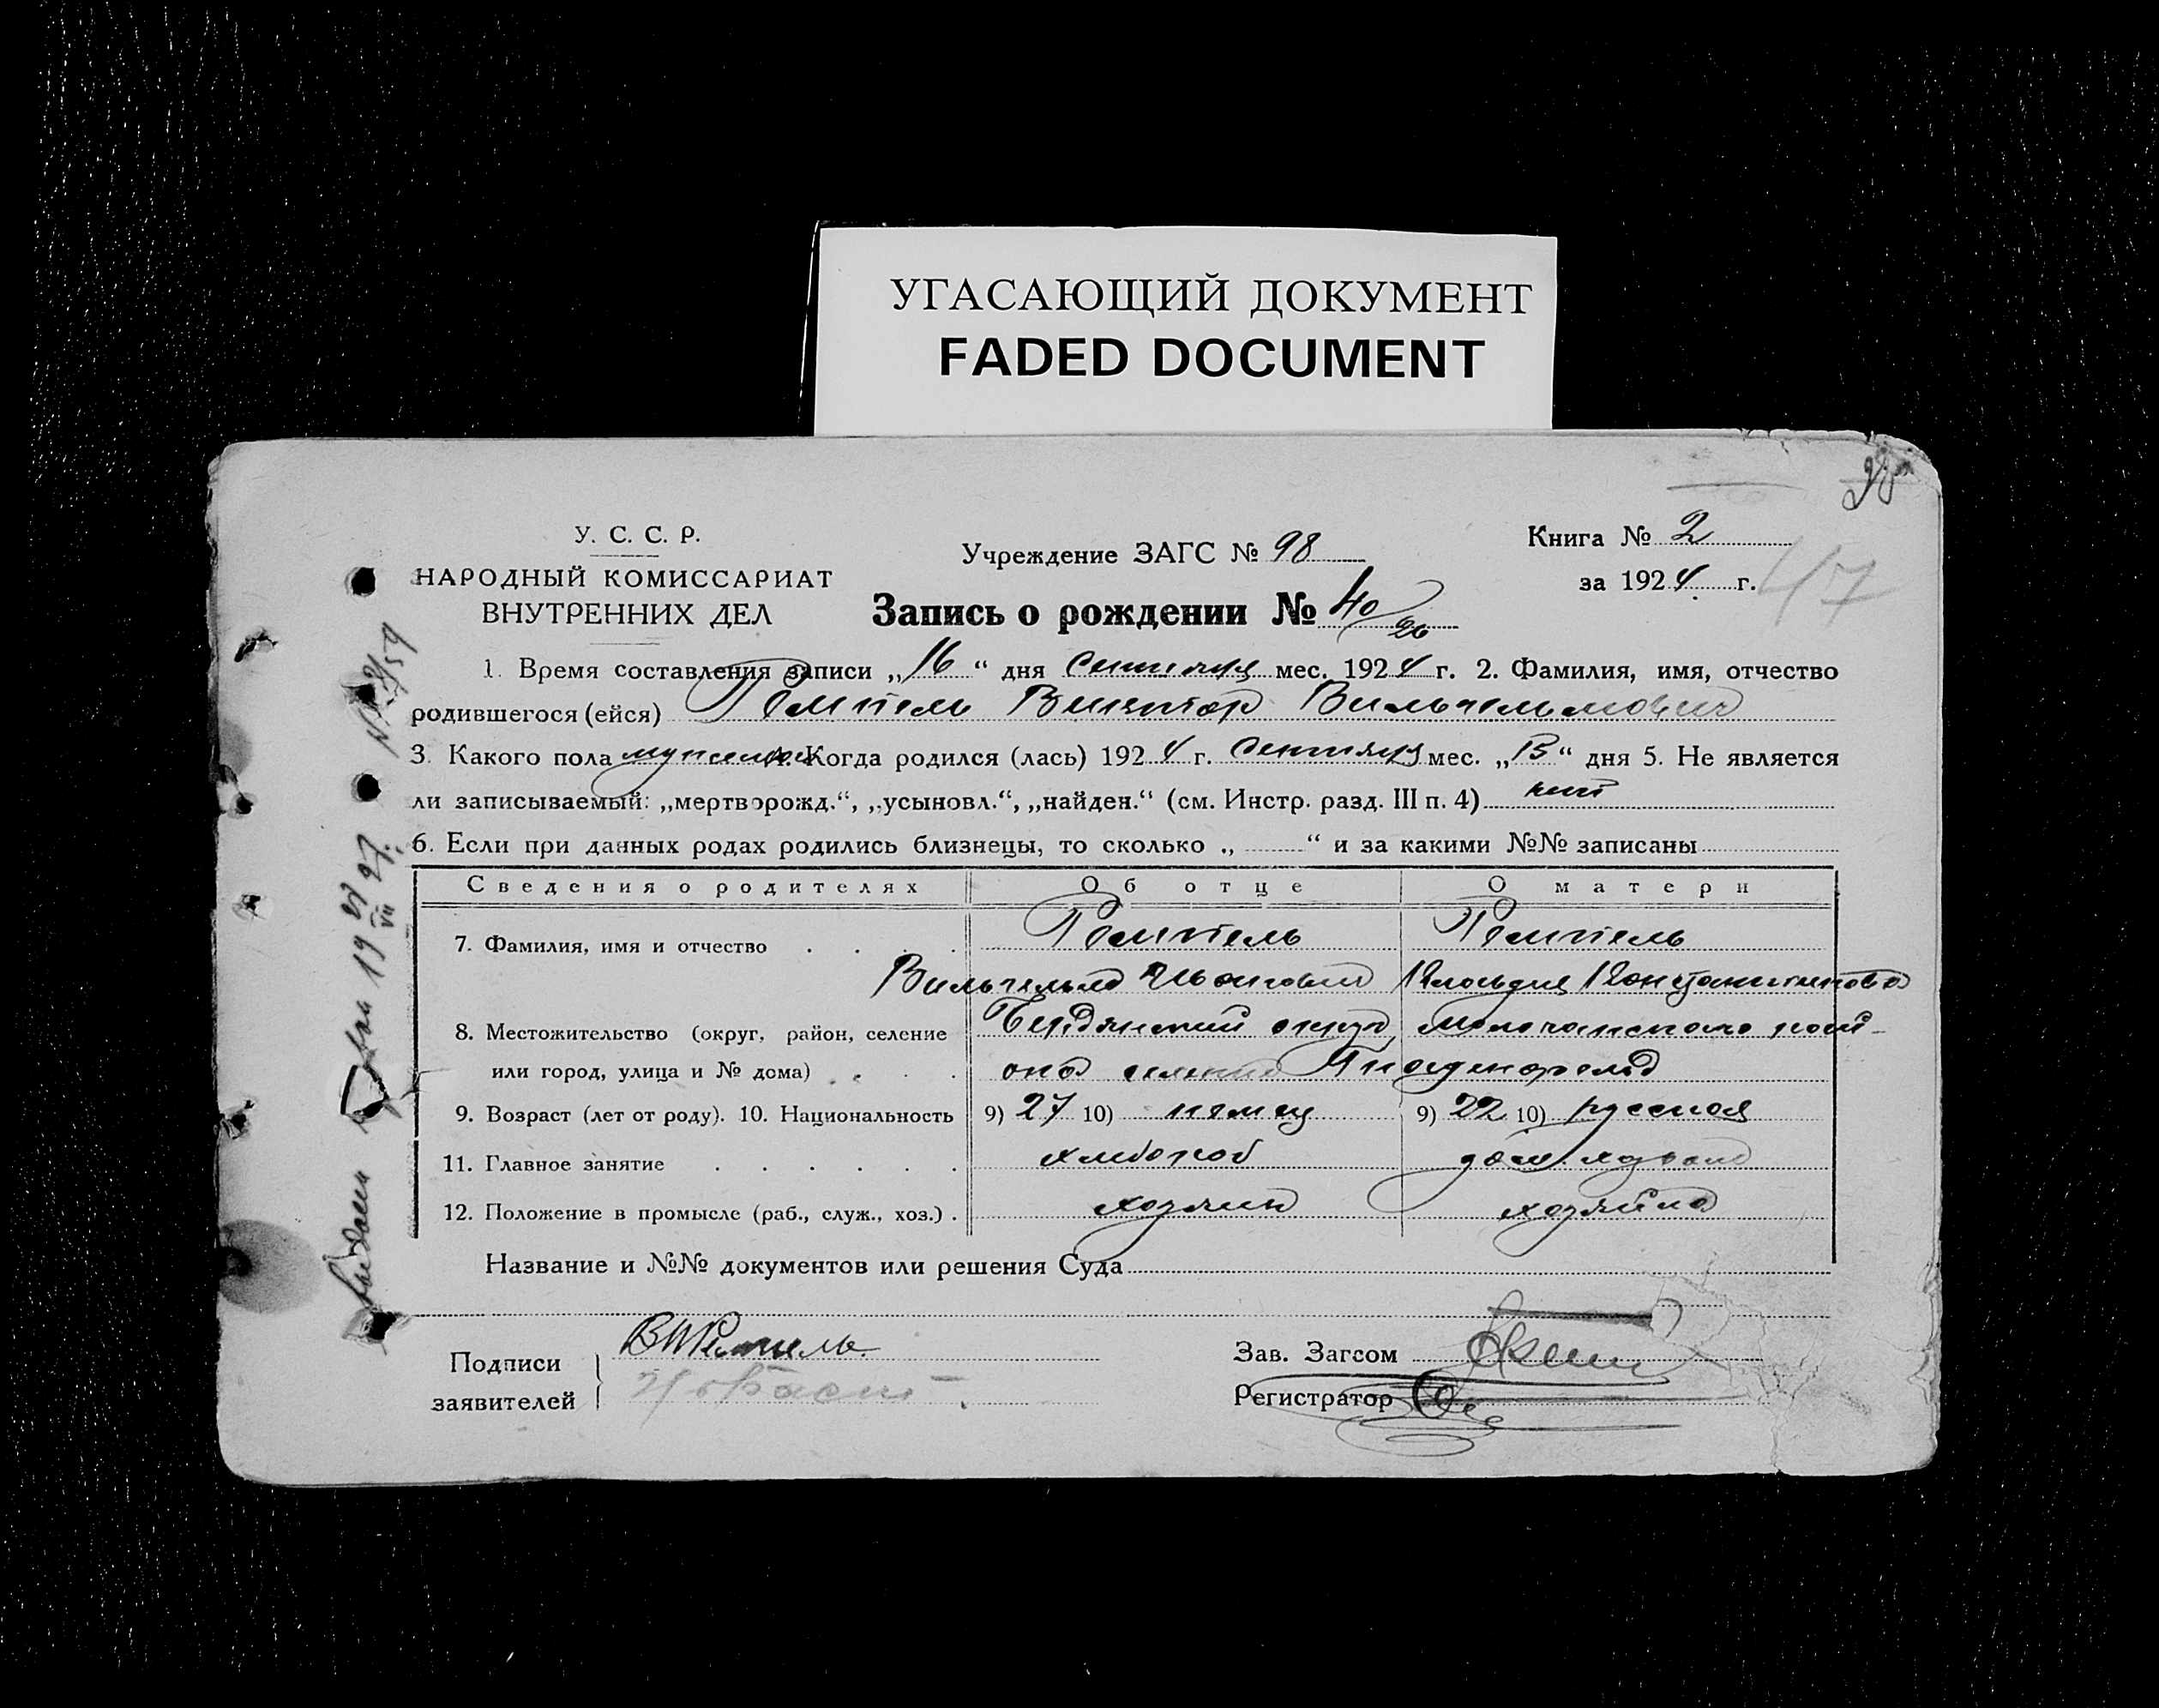 УГАСАЮЩИЙ ДОКУМЕНТ
FADED DOCUMENT
У. С. С. Р.
НАРОДНЫЙ КОМИССАРИАТ
ВНУТРЕННИХ ДЕЛ
Учреждение ЗАГС № 98
Книга № 2
за 1924 г.
47
Запись о рождении № 40
1. Время составления записи „16“ дня сентября мес. 1924 г. 2. Фамилия, имя, отчество
родившегося (ейся) Ремпель Виктор Вильгельмович
3. Какого пола мужского 4. Когда родился (лась) 1924 г. сентября мес. „13“ дня 5. Не является
ли записываемый: „мертворожд.“, „усыновл.“, „найден.“ (см. Инстр. разд. III п. 4) нет
6. Если при данных родах родились близнецы, то сколько „ “ и за какими №№ записаны
Сведения о родителях Об отце О матери
7. Фамилия, имя и отчество Ремпель Ремпель
Вильгельм Иванович Клавдия Константиновна
8. Местожительство (округ, район, селение Бердянский округ, Молочанского рай-
или город, улица и № дома) она селение Гнаденфельд
9. Возраст (лет от роду). 10. Национальность 9) 27 10) немец 9) 22 10) русская
11. Главное занятие хлебороб дом. хозяйка
12. Положение в промысле (раб., служ., хоз.) хозяин хозяйка
Название и №№ документов или решения Суда
Подписи
заявителей
В Ремпель
Зав. Загсом
Регистратор